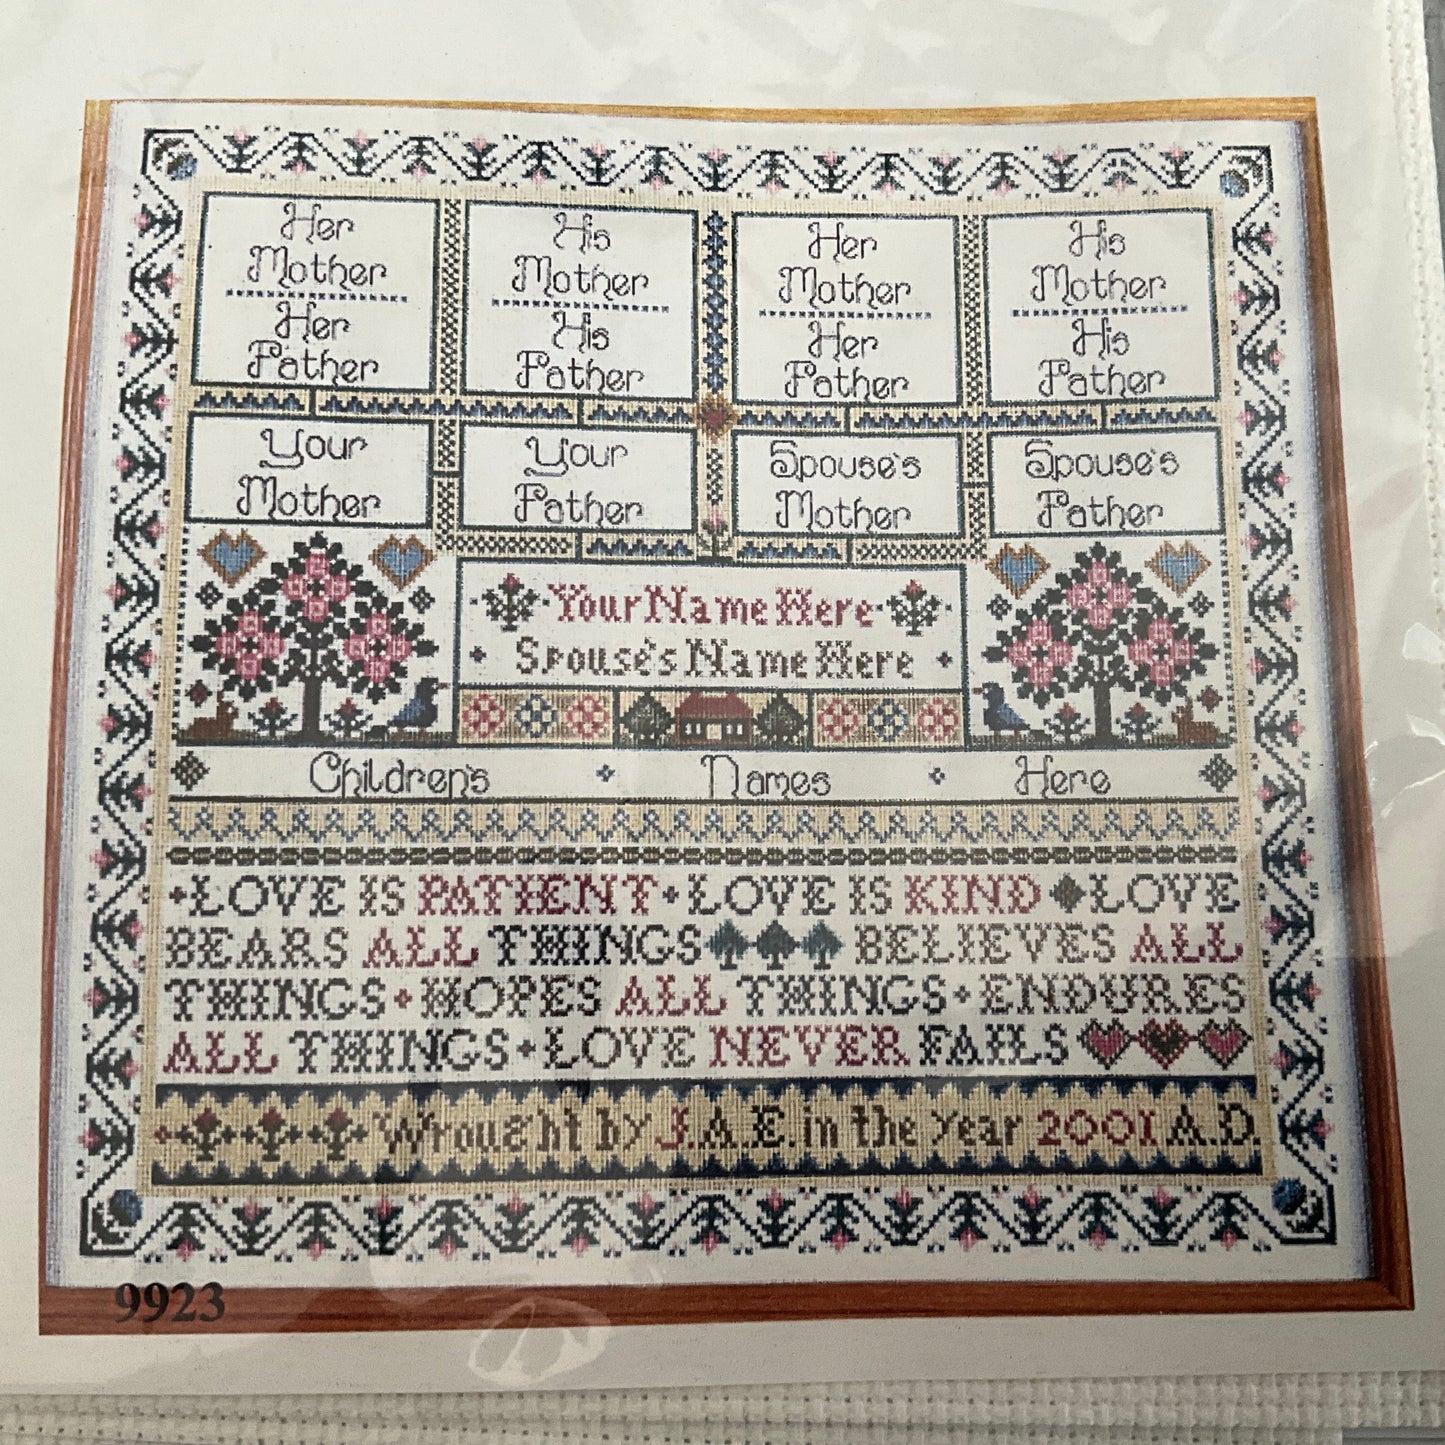 Her
Mother
Her
Father
His
Mother
His
Father
Her
Mother
Her
Father
His
Mother
His
Father
Your
Mother
Your
Father
Spouse's
Mother
Spouse's
Father
Your Name Here
Spouse's Name Here
Children's Names Here
LOVE IS PATIENT LOVE IS KIND LOVE
BEARS ALL THINGS BELIEVES ALL
THINGS HOPES ALL THINGS ENDURES
ALL THINGS LOVE NEVER FAILS
Wrought by J.A.E. in the year 2001 A.D.
9923